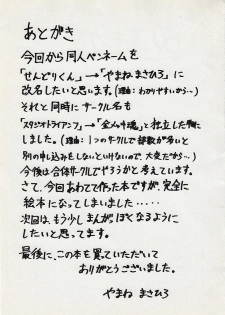 あとがき
今回から同人ペンネームを
「せんどりくん」→「やまねまさひろ」に
改名したいと思います。(理由:わかりやすいから…)
それと同時にサークル名も
「スタジオトライアンフ」→「全人魂」と独立した物に
しました。(理由:1つのサークルで部数が多いと
別の申し込みをしないといけないので、大変だから…)
今後は合体サークルでやろうかと考えています。
さて、今回あわてて作った本ですが、完全に
絵本になってしまいました‥‥‥
次回は、もう少しまんがぽくなるように
したいと思ってます。
最後に、この本を買っていただいて
ありがとうございました。
やまね まさひろ